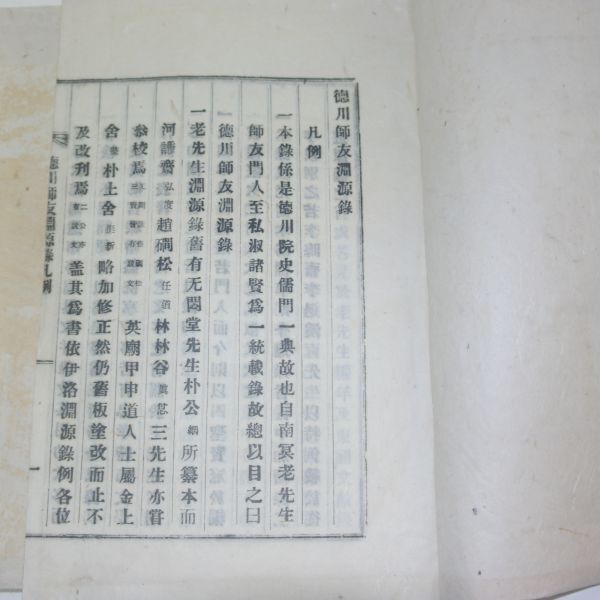 德川師友淵源錄
凡例
一本錄係是德川院史儒門一典故也自南冥老先生
師友門人至私淑諸賢爲一統載錄故總以目之曰
德川師友淵源錄
一老先生淵源錄舊有无悶堂先生朴公絪所纂本而
河謙齋弘度趙磵松任道林林谷眞怤三先生亦嘗
叅校焉 英廟甲申道人士屬金上
舍 朴上舍挺新略加修正然仍舊板塗改而止不
及改刊焉 盖其爲書依伊洛淵源錄例各位
德川師友淵源錄凡例
一